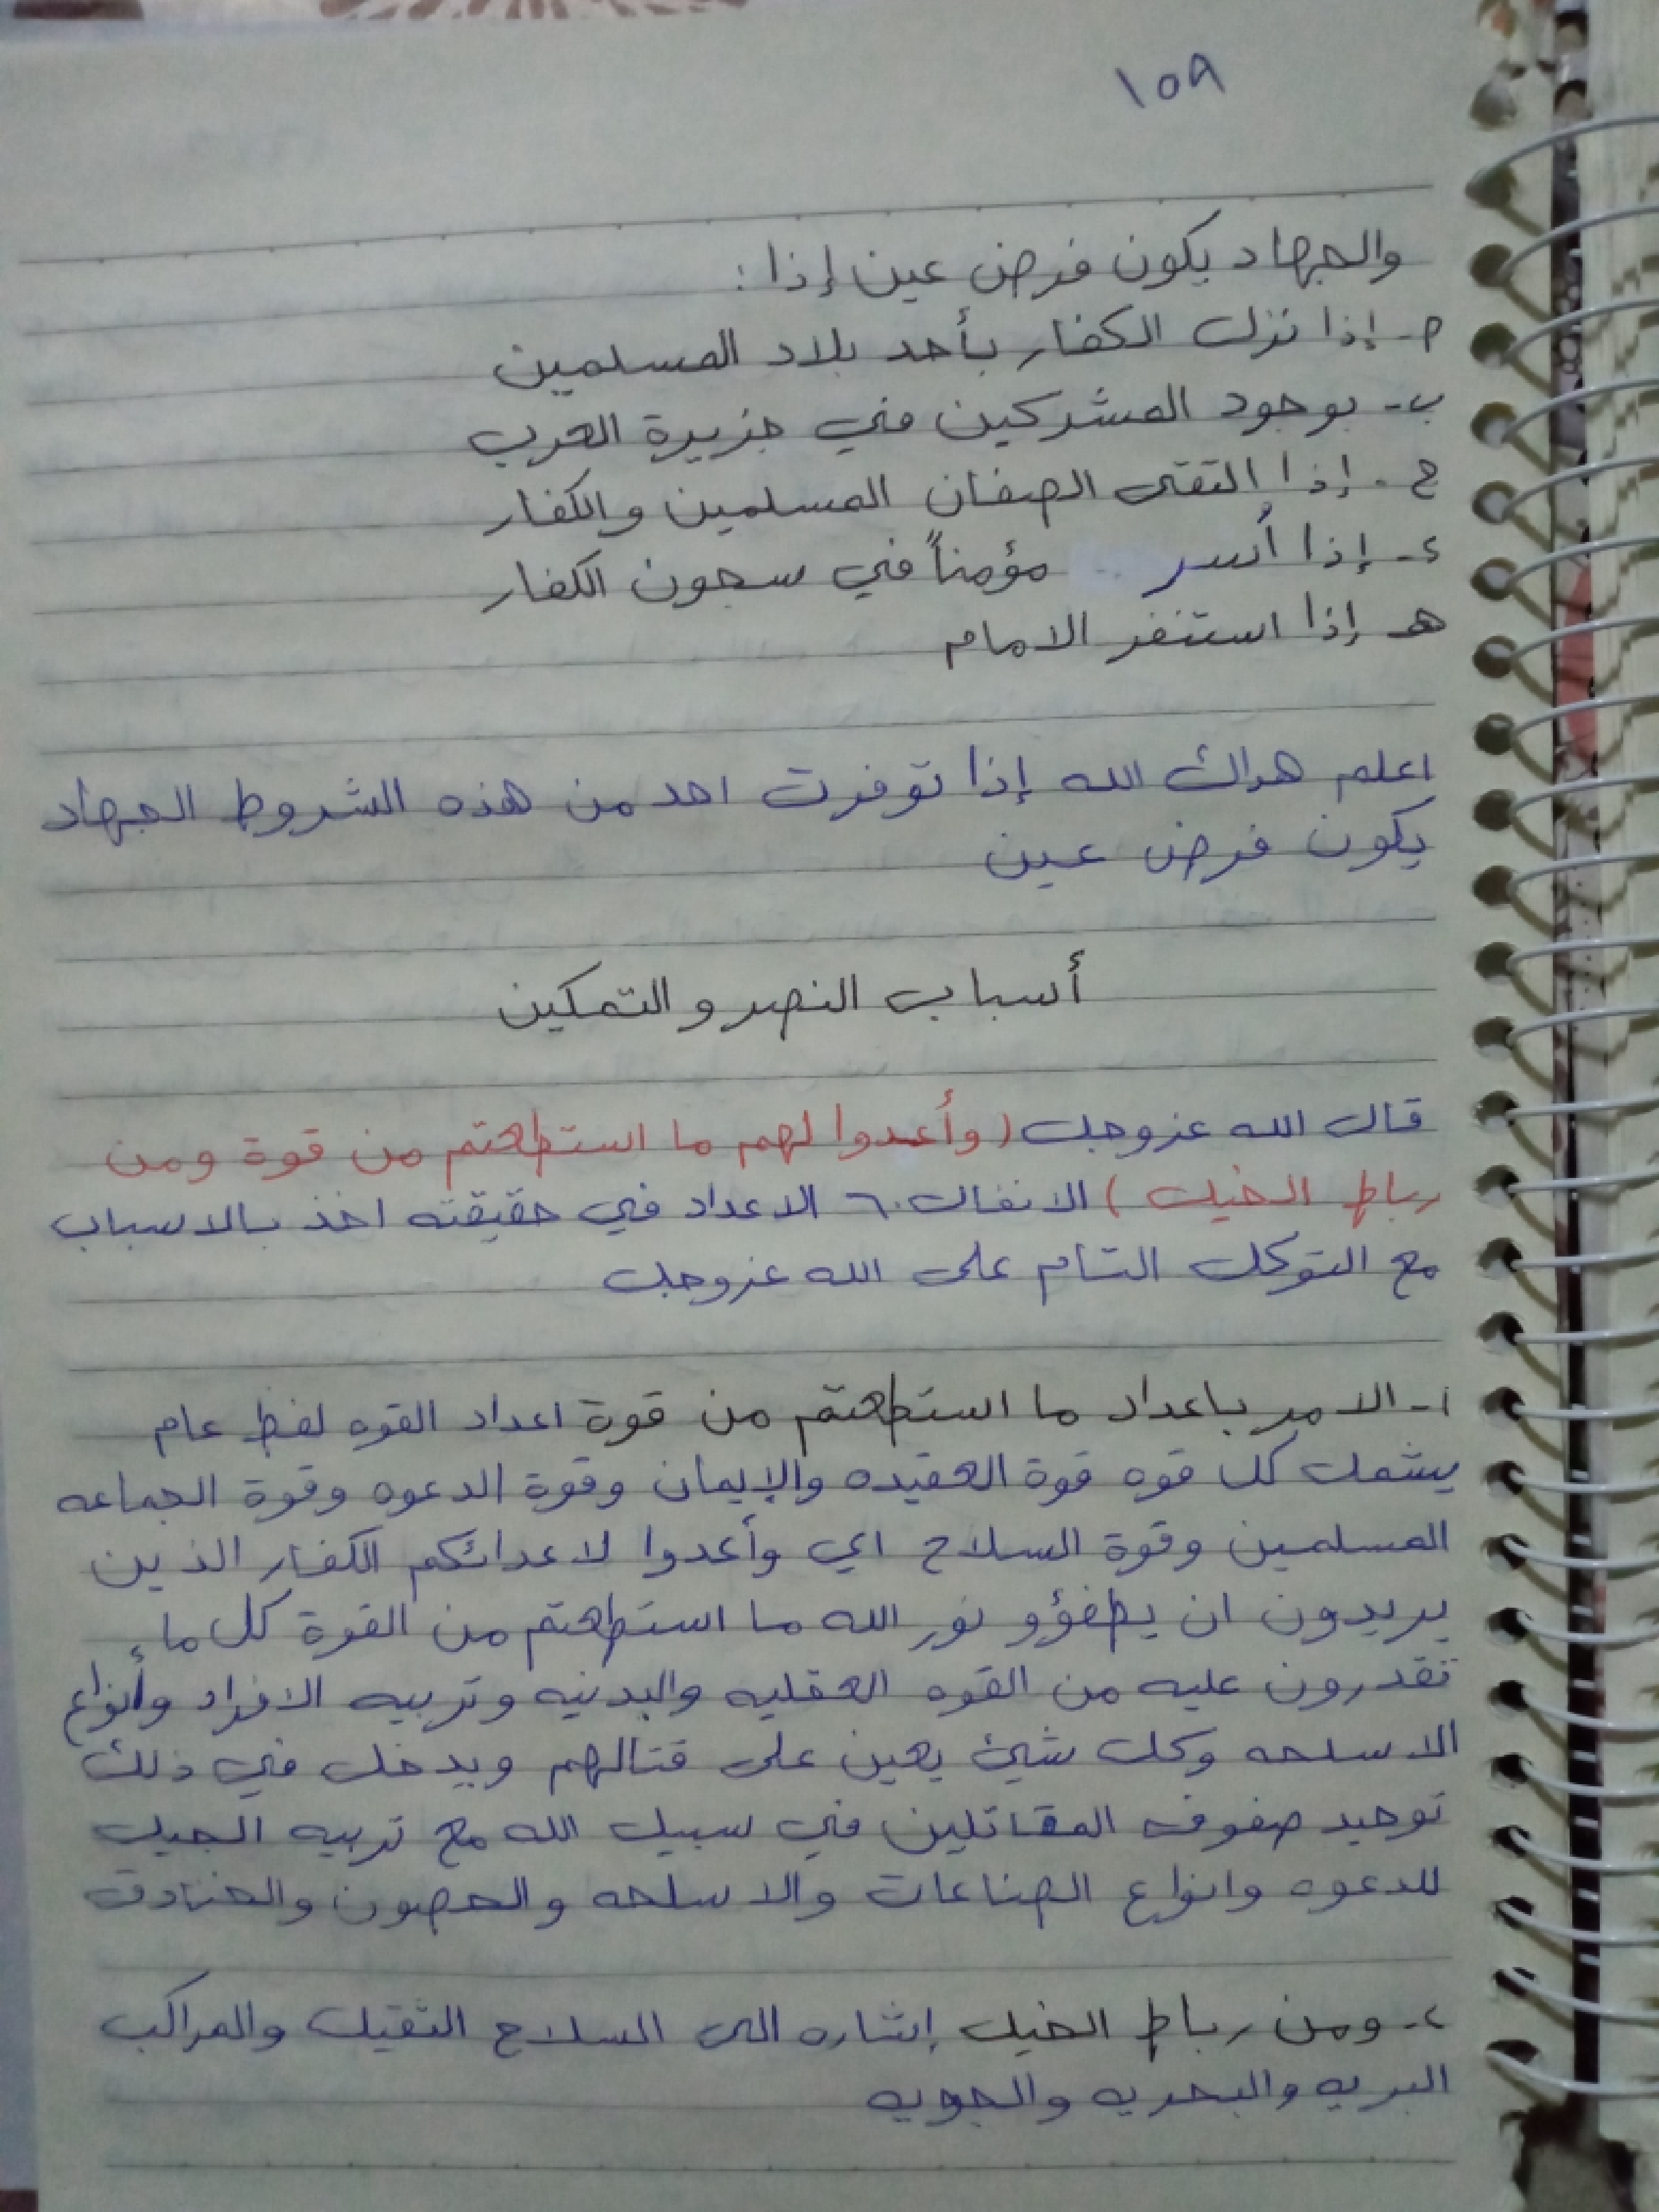 ١٥٨
والجهاد يكون فرض عين إذا :
٢- إذا نزل الكفار بأحد بلاد المسلمين
ب- بوجود المشركين في جزيرة العرب
ج - إذا التقى الصفان المسلمين والكفار
د- إذا أُسر مؤمناً في سجون الكفار
هـ إذا استنفر الامام
اعلم هداك الله إذا توفرت احد من هذه الشروط الجهاد
يكون فرض عين
أسباب النصر والتمكين
قال الله عزوجل (وأعدوا لهم ما استطعتم من قوة ومن
رباط الخيل) الانفال ٦٠ الاعداد في حقيقته اخذ بالاسباب
مع التوكل التام على الله عزوجل
١- الامر باعداد ما استطعتم من قوة اعداد القوه لفظ عام
يشمل كل قوه قوة العقيده والإيمان وقوة الدعوه وقوة الجماعه
المسلمين وقوة السلاح اي وأعدوا لاعدائكم الكفار الذين
يريدون ان يطفؤو نور الله ما استطعتم من القوة كل ما
تقدرون عليه من القوه العقليه والبدنيه وتربيه الافراد وأنواع
الاسلحه وكل شيئ يعين على قتالهم ويدخل في ذلك
توحيد صفوف المقاتلين في سبيل الله مع تربيه الجيل
للدعوه وانواع الصناعات والاسلحه والحصون والخنادق
٢- ومن رباط الخيل إشاره الى السلاح الثقيل والمراكب
البريه والبحريه والجويه